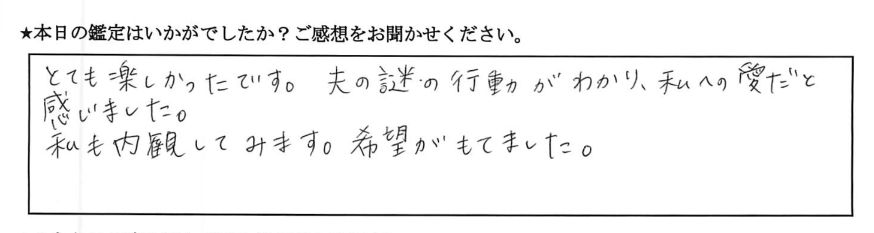 ★本日の鑑定はいかがでしたか？ご感想をお聞かせください。
とても楽しかったです。夫の謎の行動がわかり、私への愛だと
感じました。
私も内観してみます。希望がもてました。